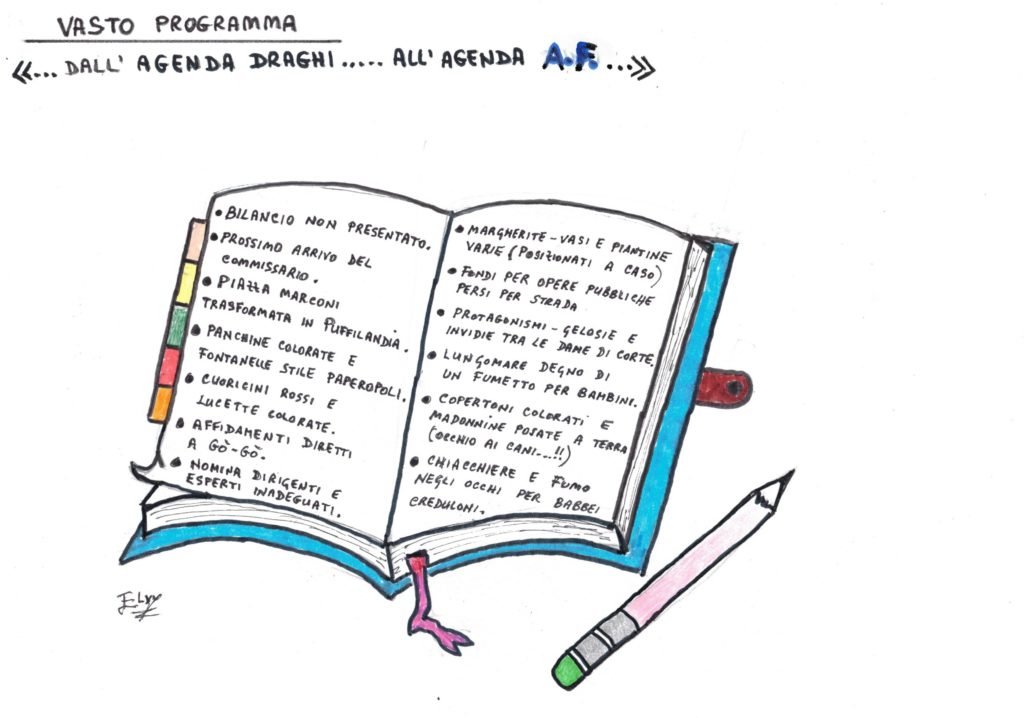 VASTO PROGRAMMA
《... DALL' AGENDA DRAGHI..... ALL'AGENDA A.F. ...》
• BILANCIO NON PRESENTATO.
• PROSSIMO ARRIVO DEL
COMMISSARIO.
• PIAZZA MARCONI
TRASFORMATA IN PUFFILANDIA.
• PANCHINE COLORATE E
FONTANELLE STILE PAPEROPOLI.
• CUORICINI ROSSI E
LUCETTE COLORATE.
• AFFIDAMENTI DIRETTI
A GÒ-GÒ.
• NOMINA DIRIGENTI E
ESPERTI INADEGUATI.
• MARGHERITE - VASI E PIANTINE
VARIE (POSIZIONATI A CASO)
• FONDI PER OPERE PUBBLICHE
PERSI PER STRADA
• PROTAGONISMI - GELOSIE E
INVIDIE TRA LE DAME DI CORTE.
• LUNGOMARE DEGNO DI
UN FUMETTO PER BAMBINI.
• COPERTONI COLORATI E
MADONNINE POSATE A TERRA
(OCCHIO AI CANI...!!)
• CHIACCHIERE E FUMO
NEGLI OCCHI PER BABBEI
CREDULONI.